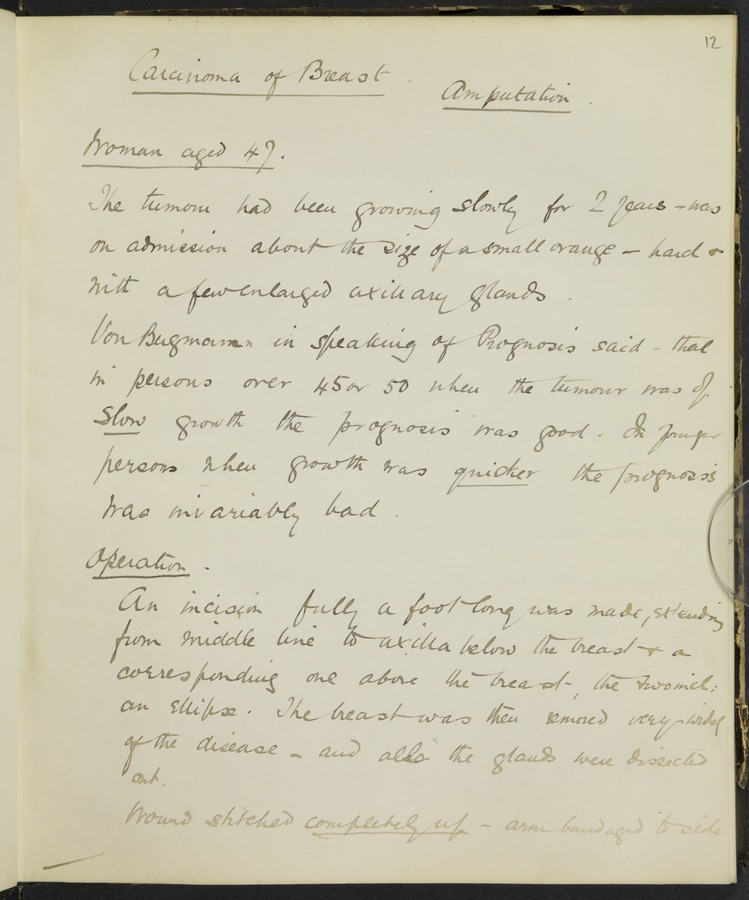 12
Carcinoma of Breast. Amputation.
Woman aged 47.
The tumour had been growing slowly for 2 years - was
on admission about the size of a small orange - hard &
with a few enlarged axillary glands.
Von Bugmann in speaking of Prognosis said - that
in persons over 45 or 50 when the tumour was of
slow growth the prognosis was good. In younger
persons when growth was quicker the prognosis
was invariably bad.
Operation.
An incision fully a foot long was made, extending
from middle line to axilla below the breast & a
corresponding one above the breast, the two incl:
an Ellipse. The breast was then removed very widely
of the disease - and also the glands were dissected
out.
Wound stitched completely up - arm bandaged to side